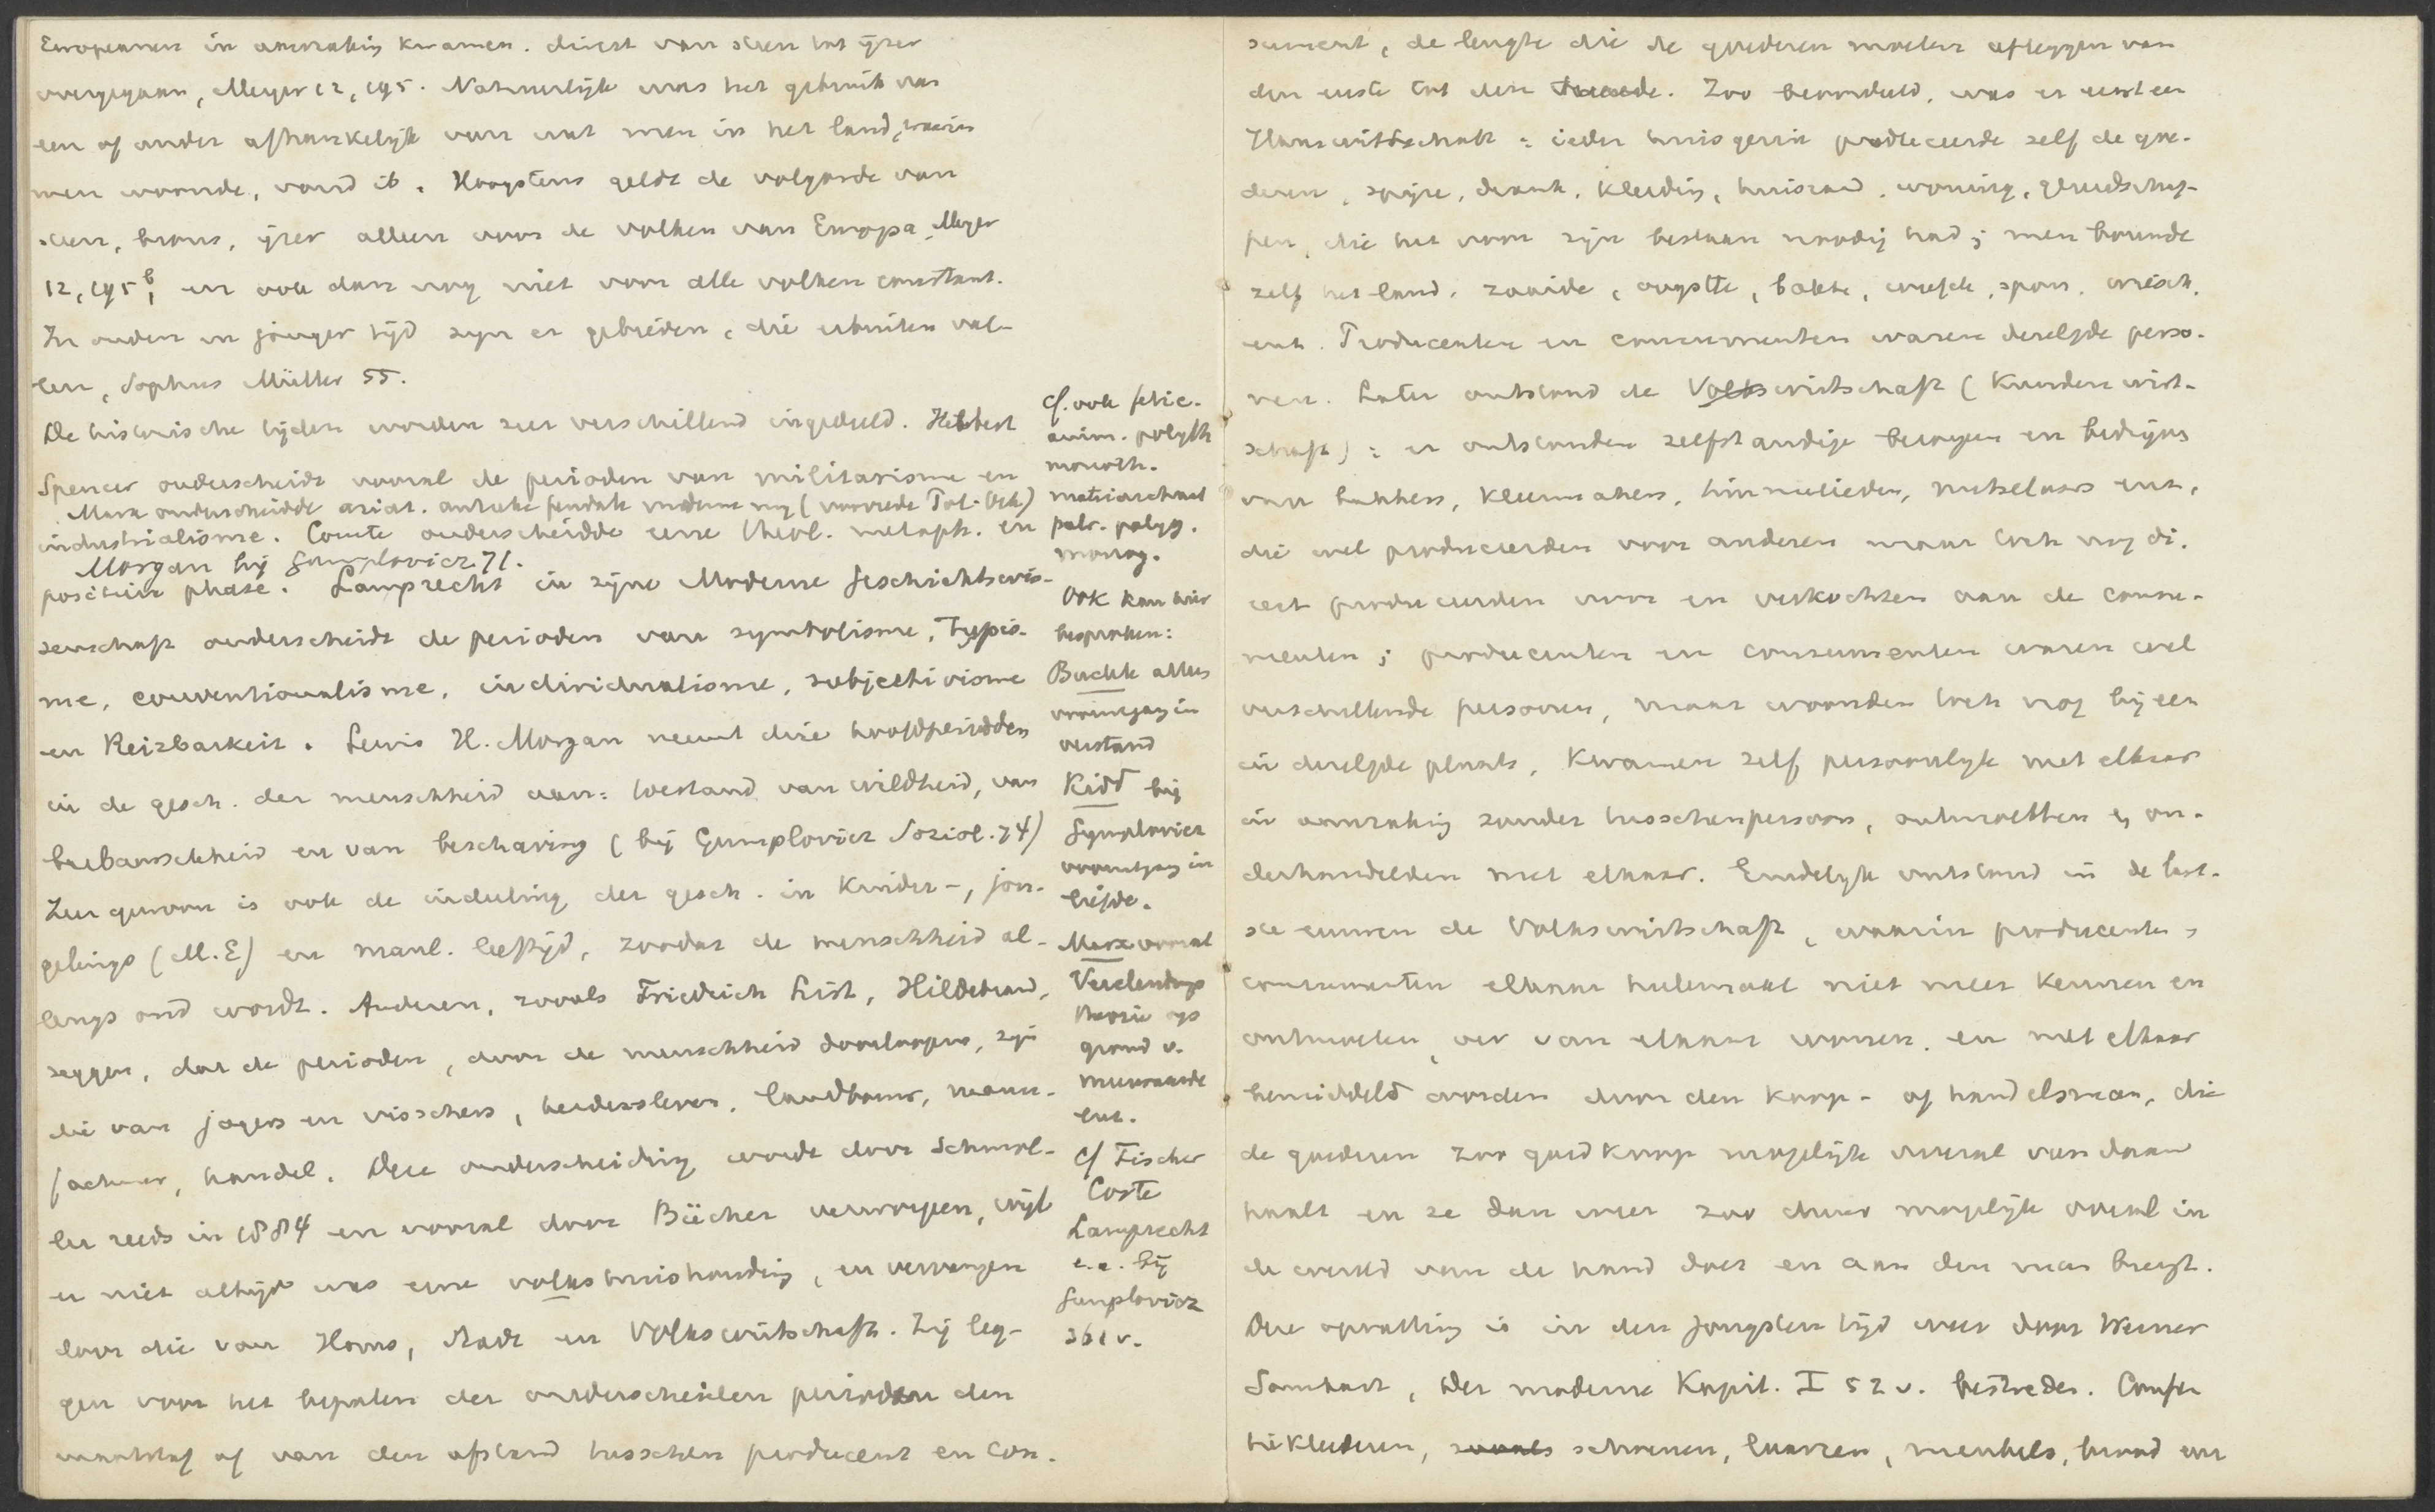 Europeanen in aanraking kwamen. direct van steen tot ijzer
overgegaan, Meyer I 2, 195. Natuurlijk was het gebruik van
een of ander afhankelijk van wat men in het land, waarin
men woonde, vond ib. Hoogstens geldt de volgorde van
steen, brons, ijzer alleen voor de volken van Europa, Meyer
I 2, 195 b, en ook dan nog niet voor alle volken constant.
In ouder en jonger tijd zijn er gebieden, die erbuiten val-
len, Sophus Müller 55.
De historische tijden worden zeer verschillend ingedeeld. Herbert
Spencer onderscheidt vooral de perioden van militarisme en
Marx onderscheidde asiat. antieke feudale moderne (voorrede Pol. Oek)
industrialisme. Comte onderscheidde eene theol. metaph. en
Morgan bij Gumplovicz 71.
positieve phase. Lamprecht in zijne Moderne Geschichtswis-
senschaft onderscheidt de perioden van symbolisme, Typis-
me, conventionalisme, individualisme, subjectivisme
en Reizbarkeit. Lewis H. Morgan neemt drie hoofdperioden
in de gesch. der menschheid aan: toestand van wildheid, van
barbaarschheid en van beschaving (bij Gumplovicz Soziol. 74)
Zeer gewoon is ook de indeeling der gesch. in Kinder-, jon-
gelings (M.E) en manl. leeftijd, zoodat de menschheid al-
lengs oud wordt. Anderen, zooals Friedrich List, Hildebrand,
zeggen, dat de perioden, door de menschheid doorloopen, zijn
die van jagers en visschers, herdersleven, landbouw, manu-
factuur, handel. Deze onderscheiding wordt door Schmol-
ler reeds in 1884 en vooral door Bücher verworpen, wijl
er niet altijd was eene volkshuishouding, en vervangen
door die van Haus, Stadt en Volkswirtschaft. Zij leg-
gen voor het bepalen der onderscheiden perioden den
maatstaf af van den afstand tusschen producent en con-
cf. ook fetic.
anim. polyth
monoth.
matriarchaat
patr. polyg.
monog.
Ook kan hier
besproken:
Buckle alles
vooruitgang in
verstand
Kidd bij
Gumplovicz
vooruitgang in
liefde.
Marx vooral
Verelendungs
theorie op
grond v.
meerwaarde
enz.
cf Fischer
Coste
Lamprecht
e.a. bij
Gumplovicz
361 v.
sument, de lengte die de goederen moeten afleggen van
den eerste tot den tweede. Zoo beoordeeld, was er eerst een
Hauswirtschaft: ieder huisgezin produceerde zelf de goe-
deren, spijze, drank, kleeding, huisraad, woning, gereedschap-
pen, die het voor zijn bestaan noodig had; men bouwde
zelf het land, zaaide, oogstte, bakte, weefde, spon, wiesch,
enz. Producenten en consumenten waren dezelfde perso-
nen. Later ontstond de Volkswirtschaft (Kundenwirt-
schaft): er ontstonden zelfstandige beroepen en bedrijven
van bakkers, kleermakers, timmerlieden, metselaars enz,
die wel produceerden voor anderen maar toch nog di-
rect produceerden voor en verkochten aan de consu-
menten; producenten en consumenten waren wel
verschillende personen, maar woonden toch nog bijeen
in dezelfde plaats, kwamen zelf persoonlijk met elkaar
in aanraking zonder tusschenpersoon, ontmoetten en on-
derhandelden met elkaar. Eindelijk ontstond in de laat-
ste eeuwen de Volkswirtschaft, waarin producenten
consumenten elkaar heelemaal niet meer kennen en
ontmoeten, ver van elkaar wonen, en met elkaar
bemiddeld worden door den koop- of handelsman, die
de goederen zoo goedkoop mogelijk overal vandaan
haalt en ze dan weer zoo duur mogelijk overal in
de wereld van de hand doet en aan den man brengt.
Deze opvatting is in den jongsten tijd weer door Werner
Sombart, Der moderne Kapit. I 52 v. bestreden. Confec
tiekleederen, zooals schoenen, laarzen, meubels, brood en